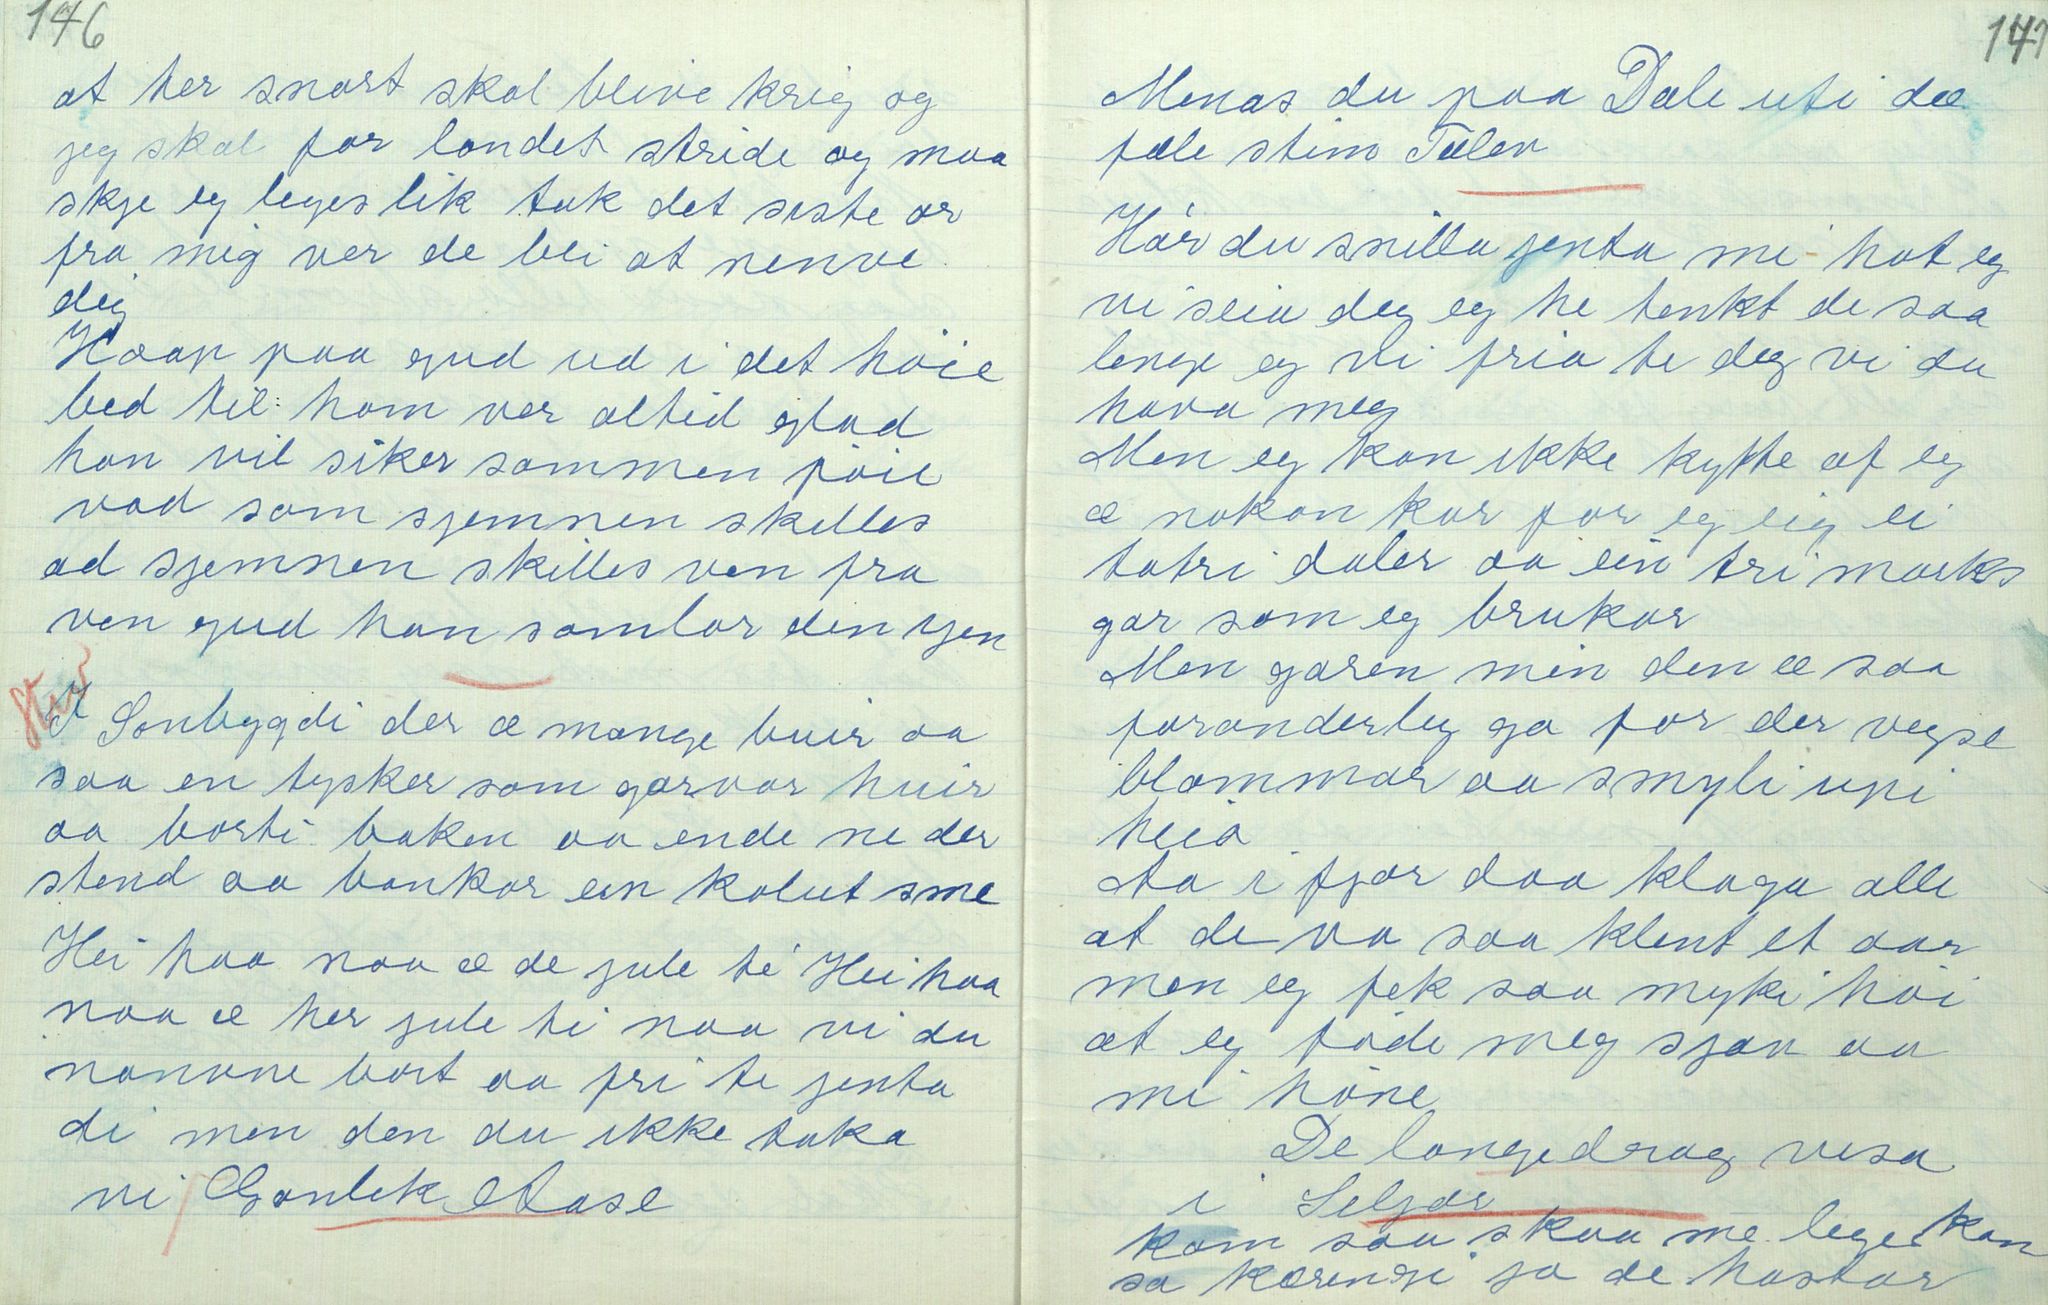 146
at her snart skal blive krig og
jeg skal for landet stride og maa
skje eg leges lik tak det siste or
fra mig ver de bli at nenve
dig
Haap paa gud ud i det høie
bed til ham ver altid glad
han vil siker sammen føie
vad som sjemnen skilles
ad sjemnen skilles ven fra
ven gud han samlar den igen
I Sønbygdi der æ mange buir aa
saa en tysker som garvar huir
aa borti baken aa ende ne der
stend aa bankar ein kolut sme
Hei haa naa æ de jule te Hei haa
naa æ her jule ti naa vi du
navne bort aa fri te jenta
di men den du ikke taka
vi Gonlek Aase
147
Menas du paa Dæle uti dæ
fæle stim Tælen
Hør du snilla jenta mi hot eg
vi seia deg eg he tenkt de saa
lenge eg vi fria te deg vi du
hava meg
Men eg kan ikke kyfte af eg
æ nokon kar for eg eig ei
tatri daler aa ein tri marks
gar som eg brukar
Men garen min den æ saa
foranderleg ga for der vegse
blommar aa smyli upi
heia
Aa i fjor daa klaga alle
at de va saa klent et aar
men eg fek saa myki høi
at eg føde meg sjøv aa
mi høne
De langedrag visa
i Seljor
kom saa skaa me leges kan
sa kærengi ja de hastar